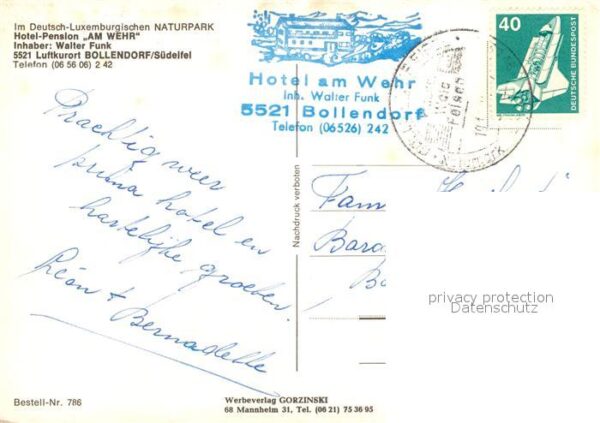 Im Deutsch-Luxemburgischen NATURPARK
Hotel-Pension „AM WEHR"
Inhaber: Walter Funk
5521 Luftkurort BOLLENDORF/Südeifel
Telefon (06 56 06) 2 42
Hotel am Wehr
Inh. Walter Funk
5521 Bollendorf
Telefon (06526) 242
40
DEUTSCHE BUNDESPOST
Felsen
Prachtig weer
prima hotel en
hartelijke groeten.
Léon + Bernadette
Nachdruck verboten
Fam
Bara
Bo
privacy protection
Datenschutz
Bestell-Nr. 786
Werbeverlag GORZINSKI
68 Mannheim 31, Tel. (06 21) 75 36 95